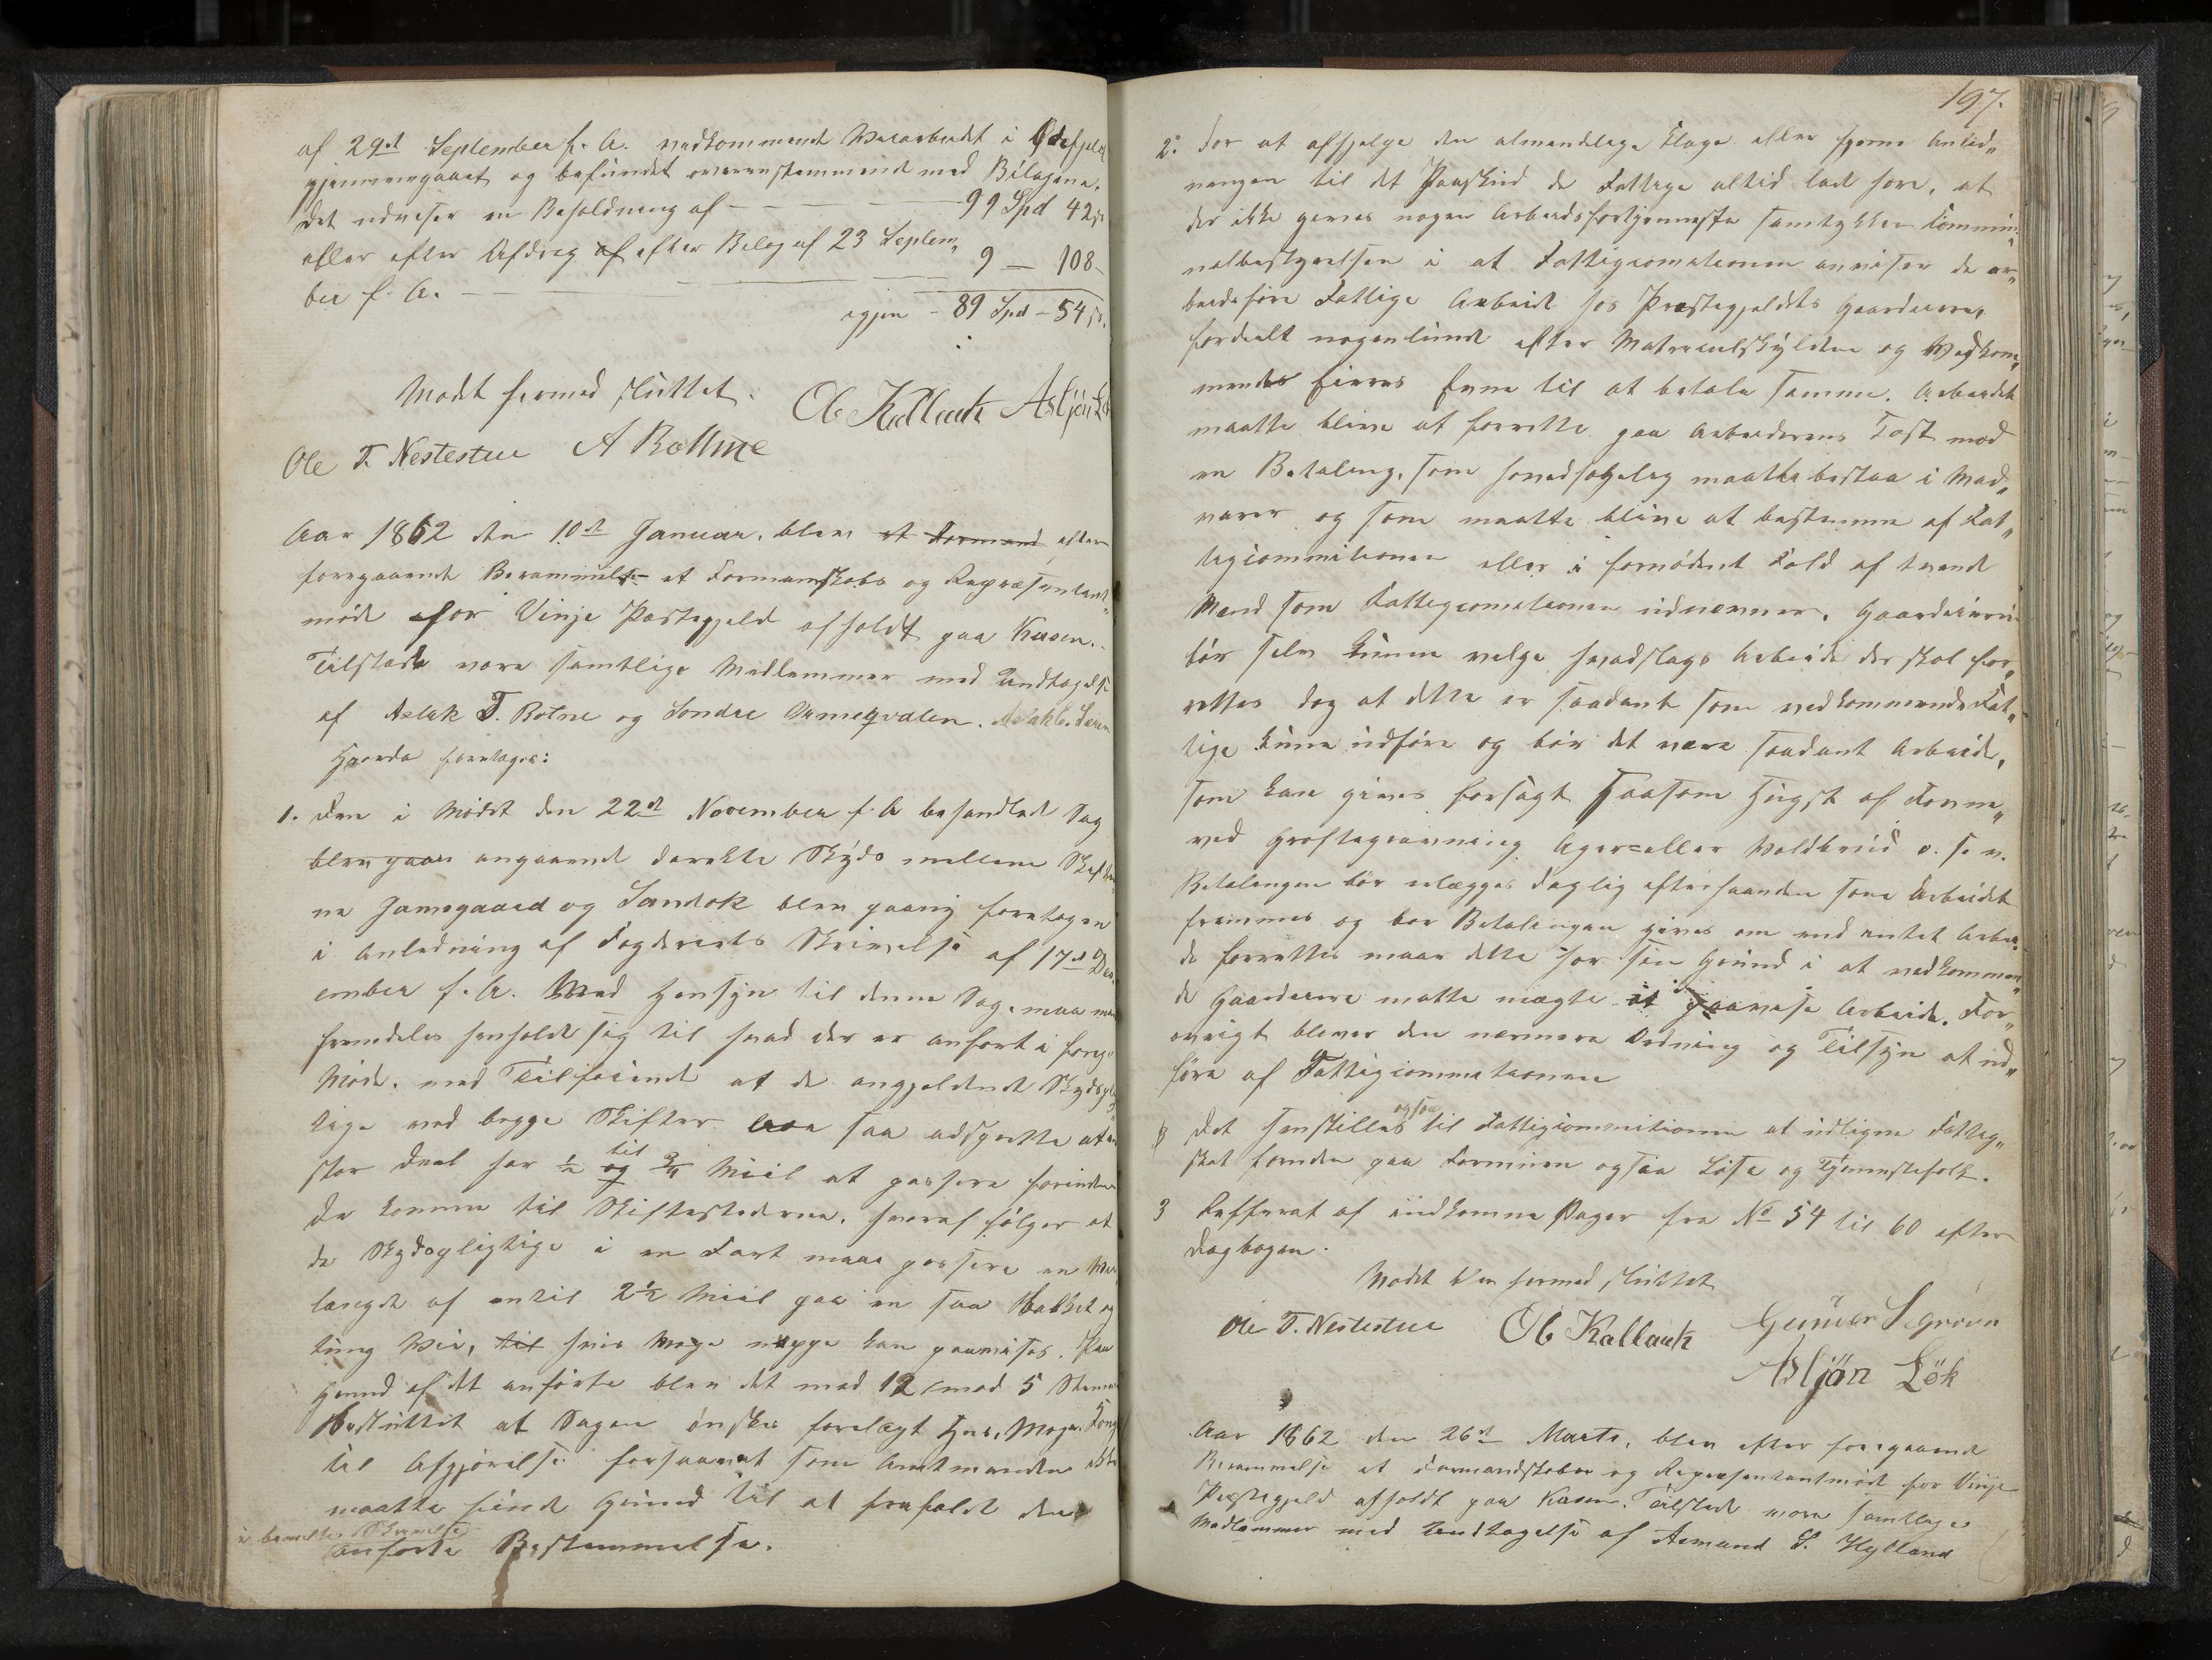 af 29de September f. A. vedkommende Veiarbeidet i
gjennemgaaet og befundet overenstemmende med Bilagene.
Det udviser en Beholdning af — — — 99 Spd 42 s
eller efter Afdrag af efter Bilag af 23 Septem„
ber f. A. — — — 9 — 108 –
igjen – 89 Spd – 54 s.
Mødet hermed sluttet.
Ol Kallauk Asljön Lök
Ole T. Nestestue A Bottme
Aar 1862 den 10de Januar, blev et Formand efter
foregaaende Berammelse et Formanskabs og Repræsentant„
møde for Vinje Præstegjeld afholdt paa Kasen.
Tilstede vare samtlige Medlemmer med Undtagelse
af Aslak T. Botne og Sondre
Hvorda foretoges:
1. Den i Mødet den 22de November f. A behandlede Sag
blev paan angaaende directe Skyds mellem
ne Jamsgaard og Sandok blev paany foretagen
i Anledning af Fogderiets Skrivelse af 17de Dec
ember f. A. Med Hensyn til denne Sag, maa man
fremdeles henholde sig til hvad der er anført i forrige
Møde, med Tilføiende at de angjeldende Skydsplig
tige ved begge Skifter saa adspredte at en
stor Deel har ½ og til ¾ Miil at passere forinden
de komme til Skiftestederne, hvoraf følger at
de Skydspligtige i en Fart maae passere en Vei
længde af indtil 2½ Miil paa en saa bakket og
tung Vei, til hvis Mage neppe kan paavises. Paa
Grund af det anførte blev det med 12 mod 5 Stemmer
besluttet at Sagen ønskes forelagt Hans Majs. Kong
til Afgjørelse forsaavidt som Amtmanden ikke
maatte finde Grund til at frafalde den
i bemeldte Skrivelse
anførte Bestemmelse.
197.
2. For at afhjelpe den almindelige Klage eller fjerne Anled„
ningen til det Paaskud de Fattige altid lade høre, at
der ikke gives nogen Arbeidsfortjenneste samtykker Kommu„
nalbestyrelsen i at Fattigcomitionen anviser de ar„
beidsføre Fattige Arbeid hos Præstegjeldets Gaardeiere,
fordeelt nogenlunde efter Matriculskylden og Vedkom„
mendes Eieres Evne til at betale samme. Arbeidet
maatte blive at forrette paa Arbeiderens Kost mod
en Betaling, som hovedsagelig maatte bestaa i Mad„
varer og som maatte blive at bestemme af Fat„
tigcommitionen eller i fornødent Fald af tvende
Mænd som Fattigcomitionen udnævner. Gaardeieren
bør selv kunne velge hvadslags Arbeide der skal for„
rettes dog at dette er saadant som vedkommende Fat„
tige kunne udføre og bør det være saadant Arbeide,
som kan gives forsagt saasom Hugst af Tømme„
ved Grøftegravning Ager= eller Voldbrud o. s. v.
Betalingen bør erlægges daglig efterhaanden som Arbeidet
fremmes og bør Betalingen gives om end intet Arbei„
de forrettes naar dette har sin Grund i at vedkommen„
de Gaardeiere matte nægte at paavise Arbeide. For„
øvrigt bliver den nærmere Ordning og Tilsyn at ud„
føre af Fattigcommitionen
Det henstilles ogsaa til Fattigcommitionen at udligne Fattig„
skat foruden paa Formuen ogsaa Løse og Tjennestefolk.
3 Refferat af indkomne Sager fra No 54 til 60 efter
Dagbogen.
Mødet blev hermed sluttet
Ole T. Nestestue Ol Kallauk Gunder S grovn
Asljön Lök
Aar 1862 den 26de Marts, blev efter foregaaende
Berammelse et Formandskabs og Repræsentantmøde for Vinje
Præstegjeld afholdt paa Kasen. Tilstede vare samtlige
Medlemmer med Undtagelse af Aamund S. Hylland